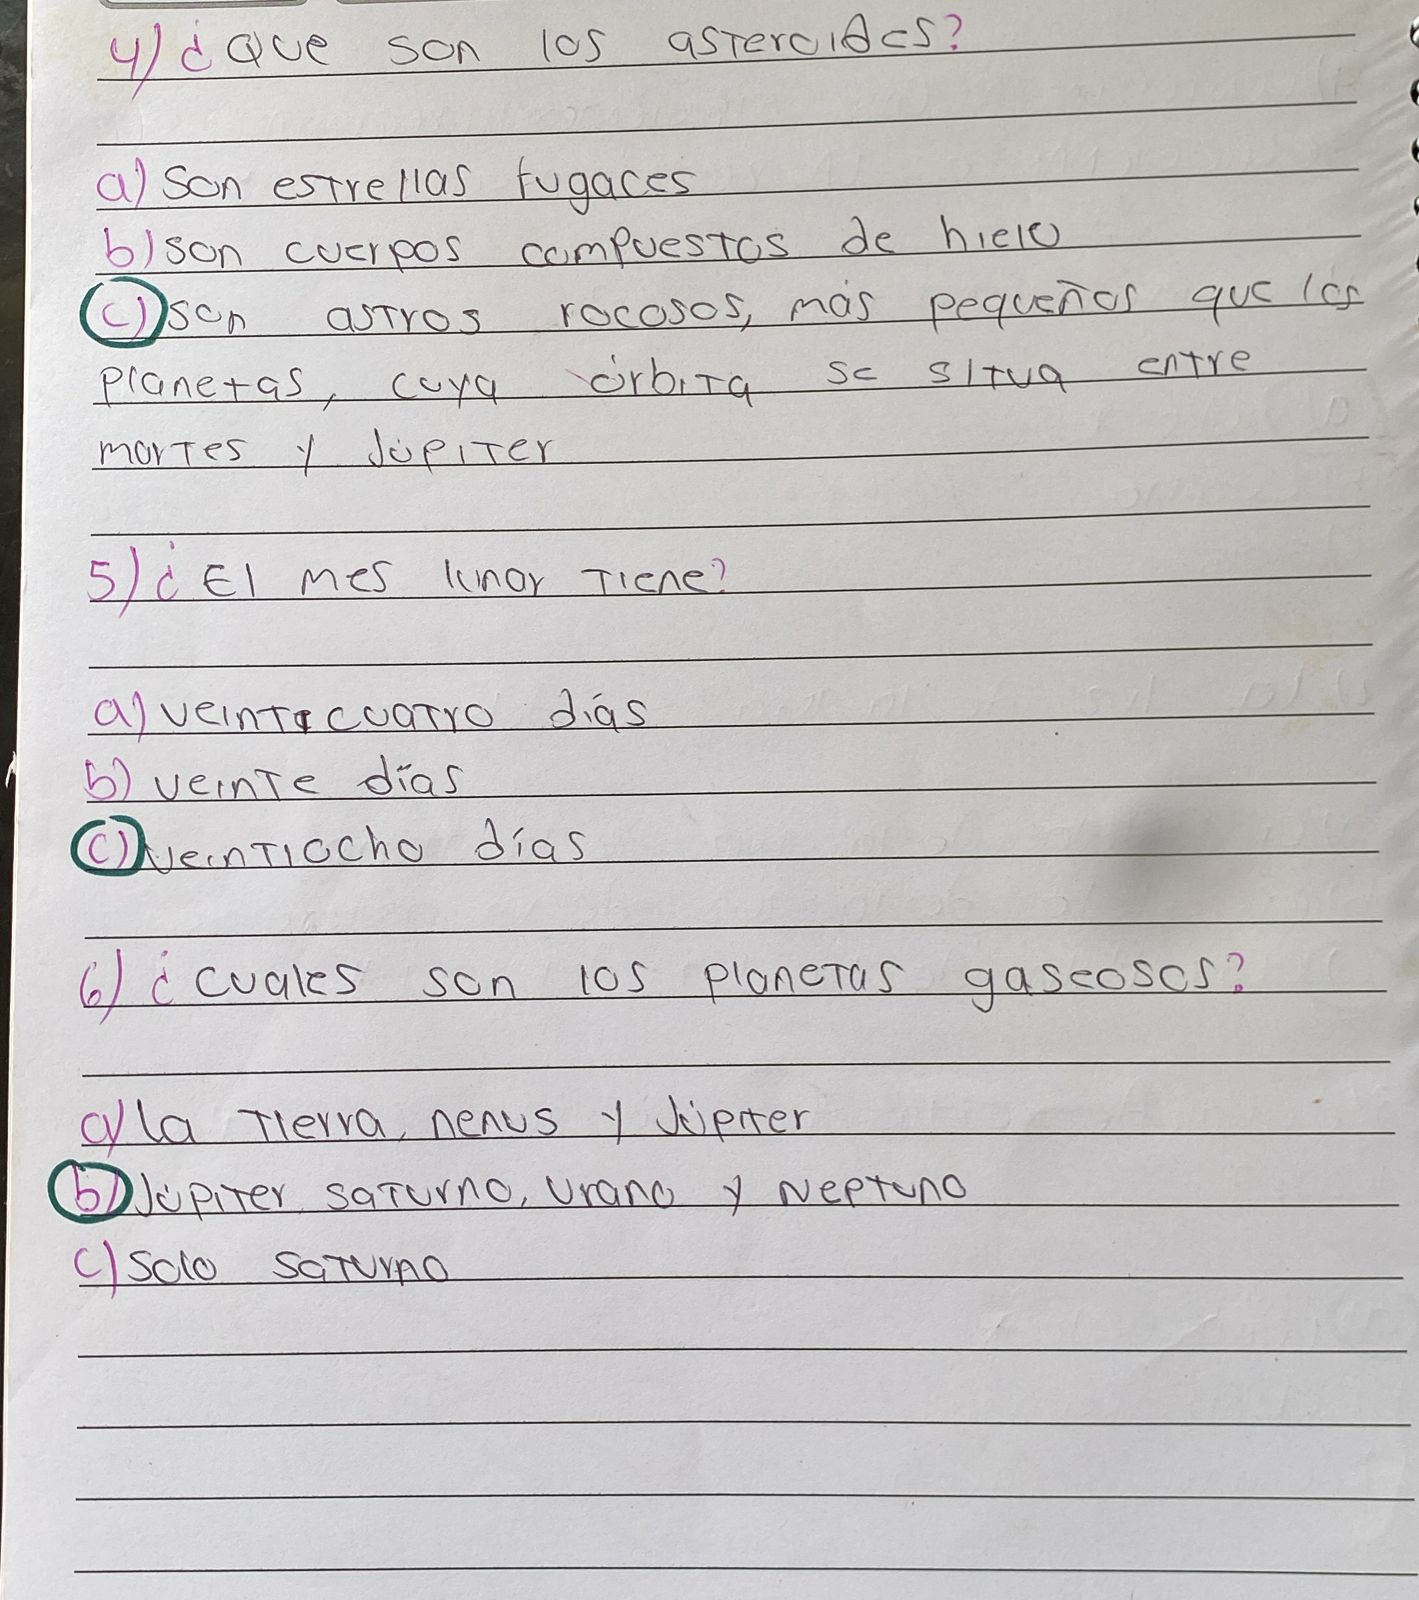 4) ¿Que son los asteroides?
a) Son estrellas fugaces
b) son cuerpos compuestos de hielo
c) son astros rocosos, más pequeños que los
planetas, cuya órbita se situa entre
martes y Júpiter
5) ¿El mes lunar tiene?
a) veinticuatro días
b) veinte días
c) veintiocho días
6) ¿cuales son los planetas gaseosos?
a) la Tierra, nenus y Júpiter
b) Júpiter, saturno, urano y Neptuno
c) solo saturno